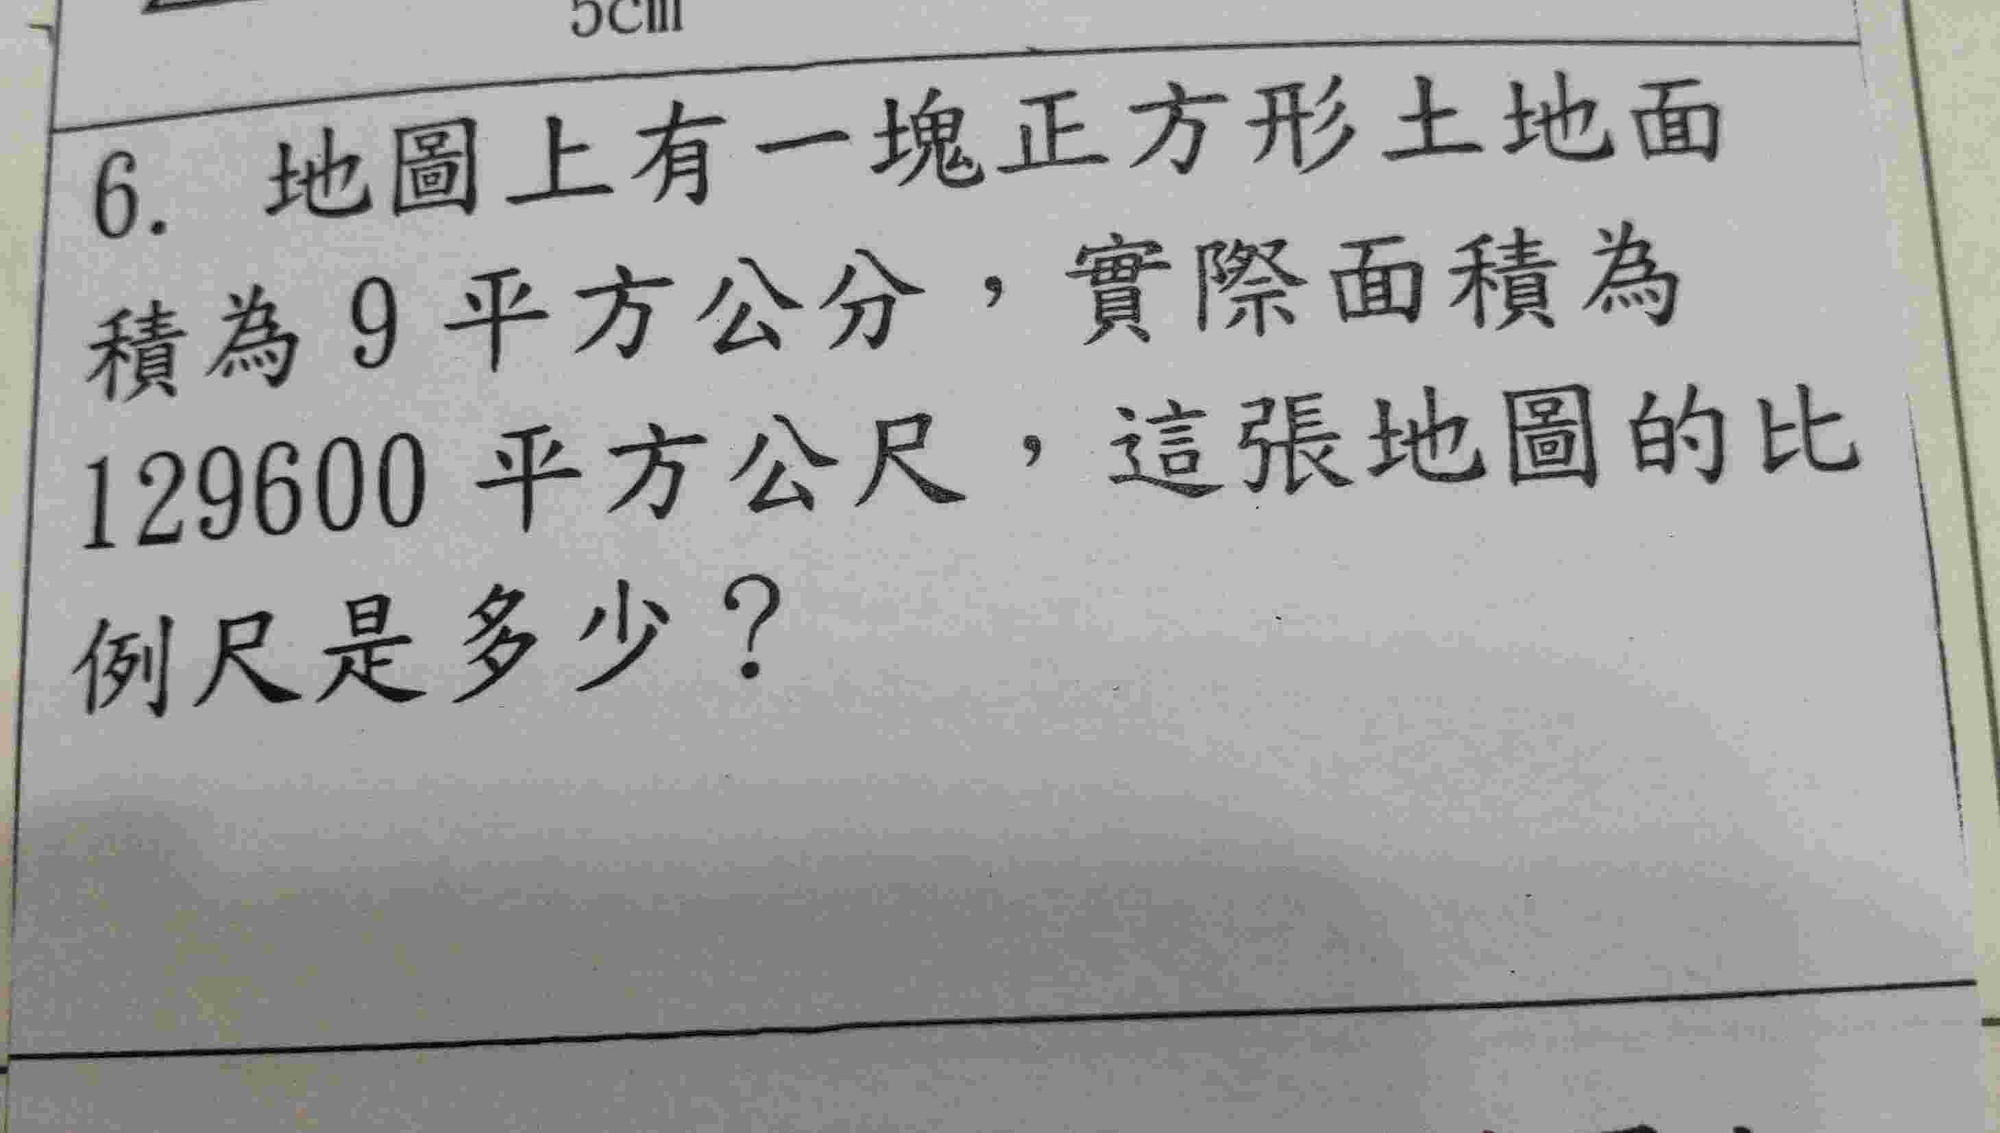 5cm
6. 地圖上有一塊正方形土地面
積為 9 平方公分，實際面積為
129600 平方公尺，這張地圖的比
例尺是多少？